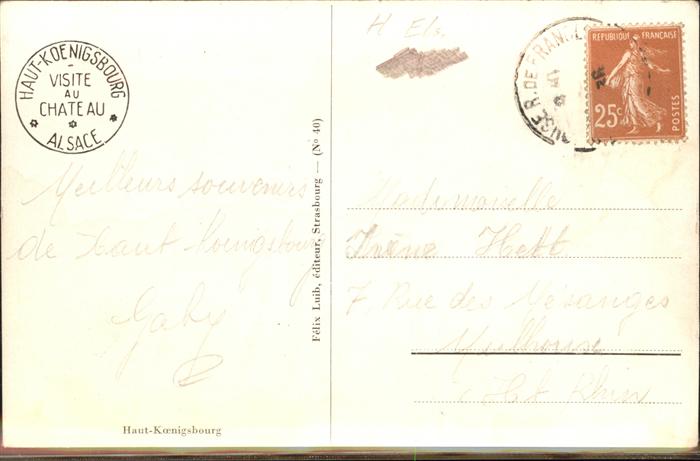 HAUT-KŒNIGSBOURG
VISITE
AU
CHATEAU
ALSACE
Meilleurs souvenirs
de Haut Koenigsbourg
Gaby
Haut-Kœnigsbourg
Félix Luib, éditeur, Strasbourg — (N° 40)
H Els.
R. DE FRANCE
REPUBLIQUE FRANÇAISE
25c
POSTES
Mademoiselle
Irène Hett
7, Rue des Mésanges
Mulhouse
Ht Rhin